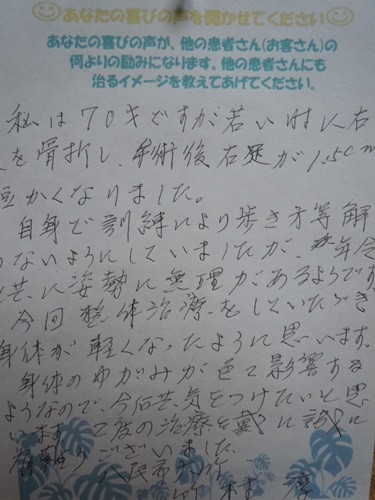 あなたの喜びの声を聞かせてください
あなたの喜びの声が、他の患者さん(お客さん)の
何よりの励みになります。他の患者さんにも
治るイメージを教えてあげてください。
私は70才ですが若い时に右
を骨折し、手術後右足が1.5cm
短かくなりました。
自身で訓練により歩き方等解
らないようにしていましたが、年令
と共に姿勢に無理があるようです
今回整体治療をしていただき
身体が軽くなったように思います。
身体のゆがみが色々影響する
ようなので、今后共気をつけたいと思
います。2度の治療を戴き誠に
有難うございました。
村